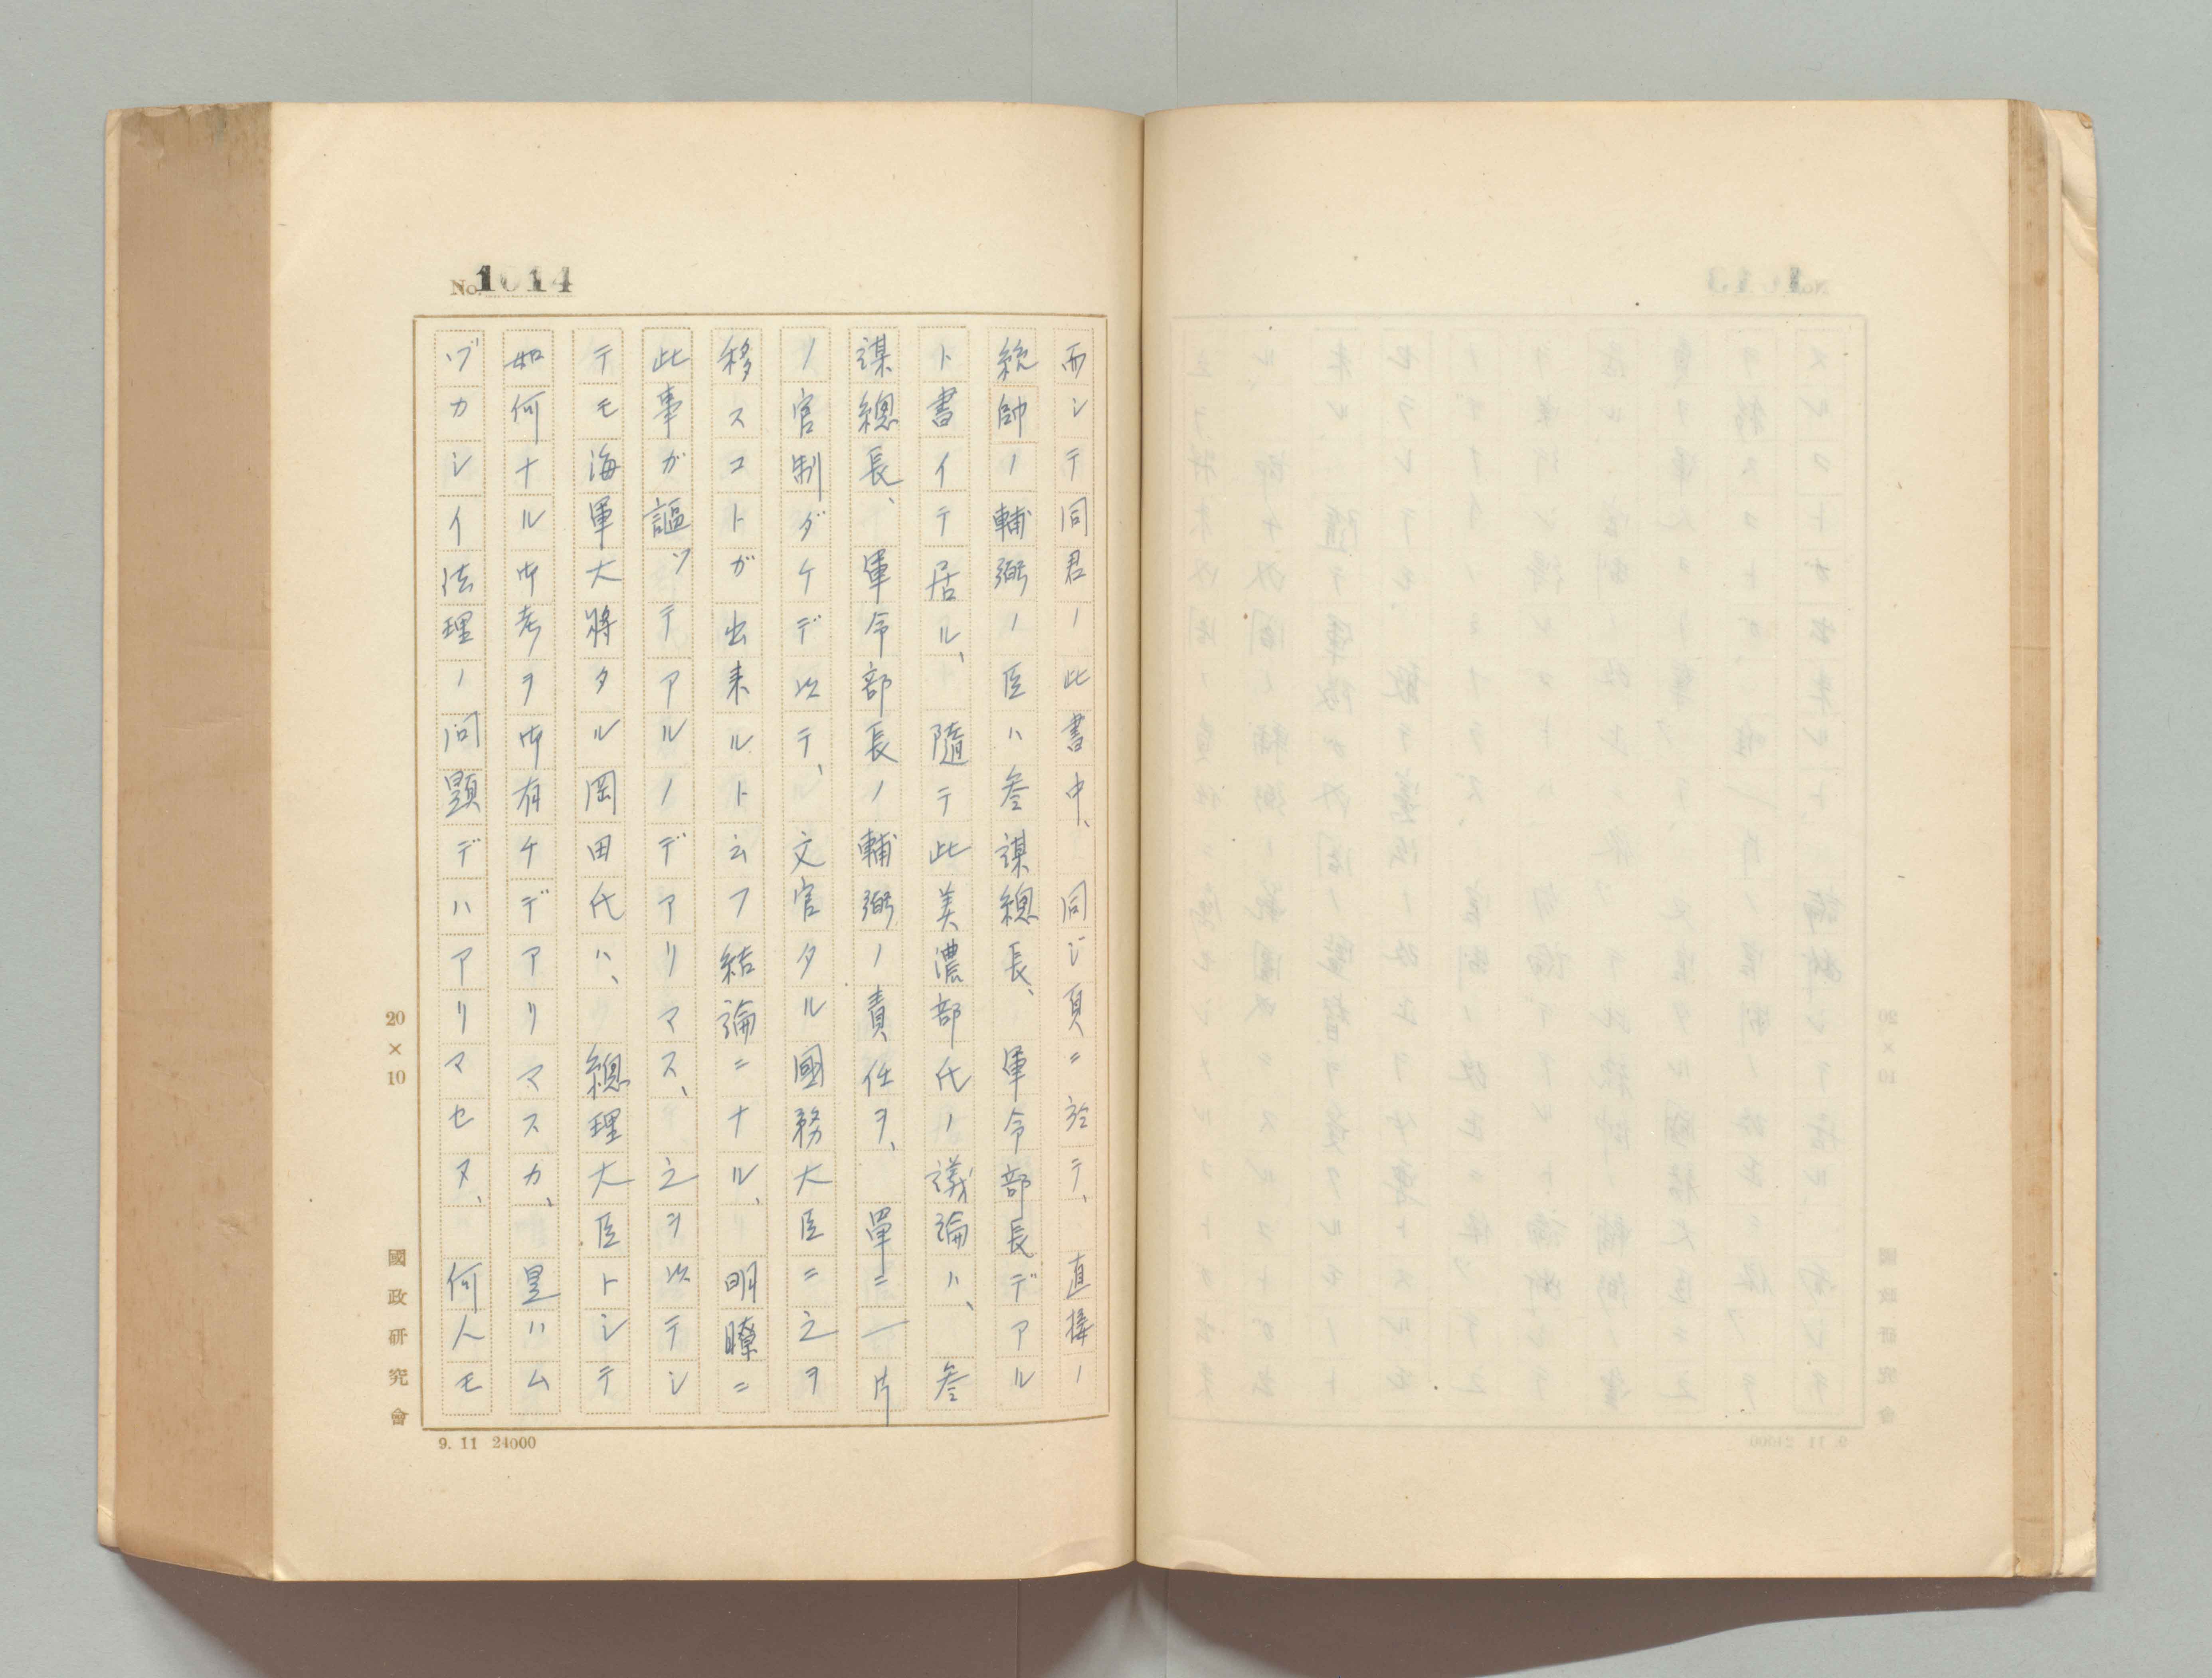 No. 1014
而シテ同君ノ此書中、同ジ頁ニ於テ、直接ノ
統帥ノ輔弼ノ臣ハ參謀總長、軍令部長デアル
ト書イテ居ル、隨テ此美濃部氏ノ議論ハ、參
謀總長、軍令部長ノ輔弼ノ責任ヲ、單ニ一片
ノ官制ダケデ以テ、文官タル國務大臣ニ之ヲ
移スコトガ出来ルト云フ結論ニナル、明瞭ニ
此事ガ謳ツテアルノデアリマス、之ヲ以テシ
テモ海軍大將タル岡田氏ハ、總理大臣トシテ
如何ナル御考ヲ御有チデアリマスカ、是ハム
ヅカシイ法理ノ問題デハアリマセヌ、何人モ
20×10
國政研究會
9. 11 24000